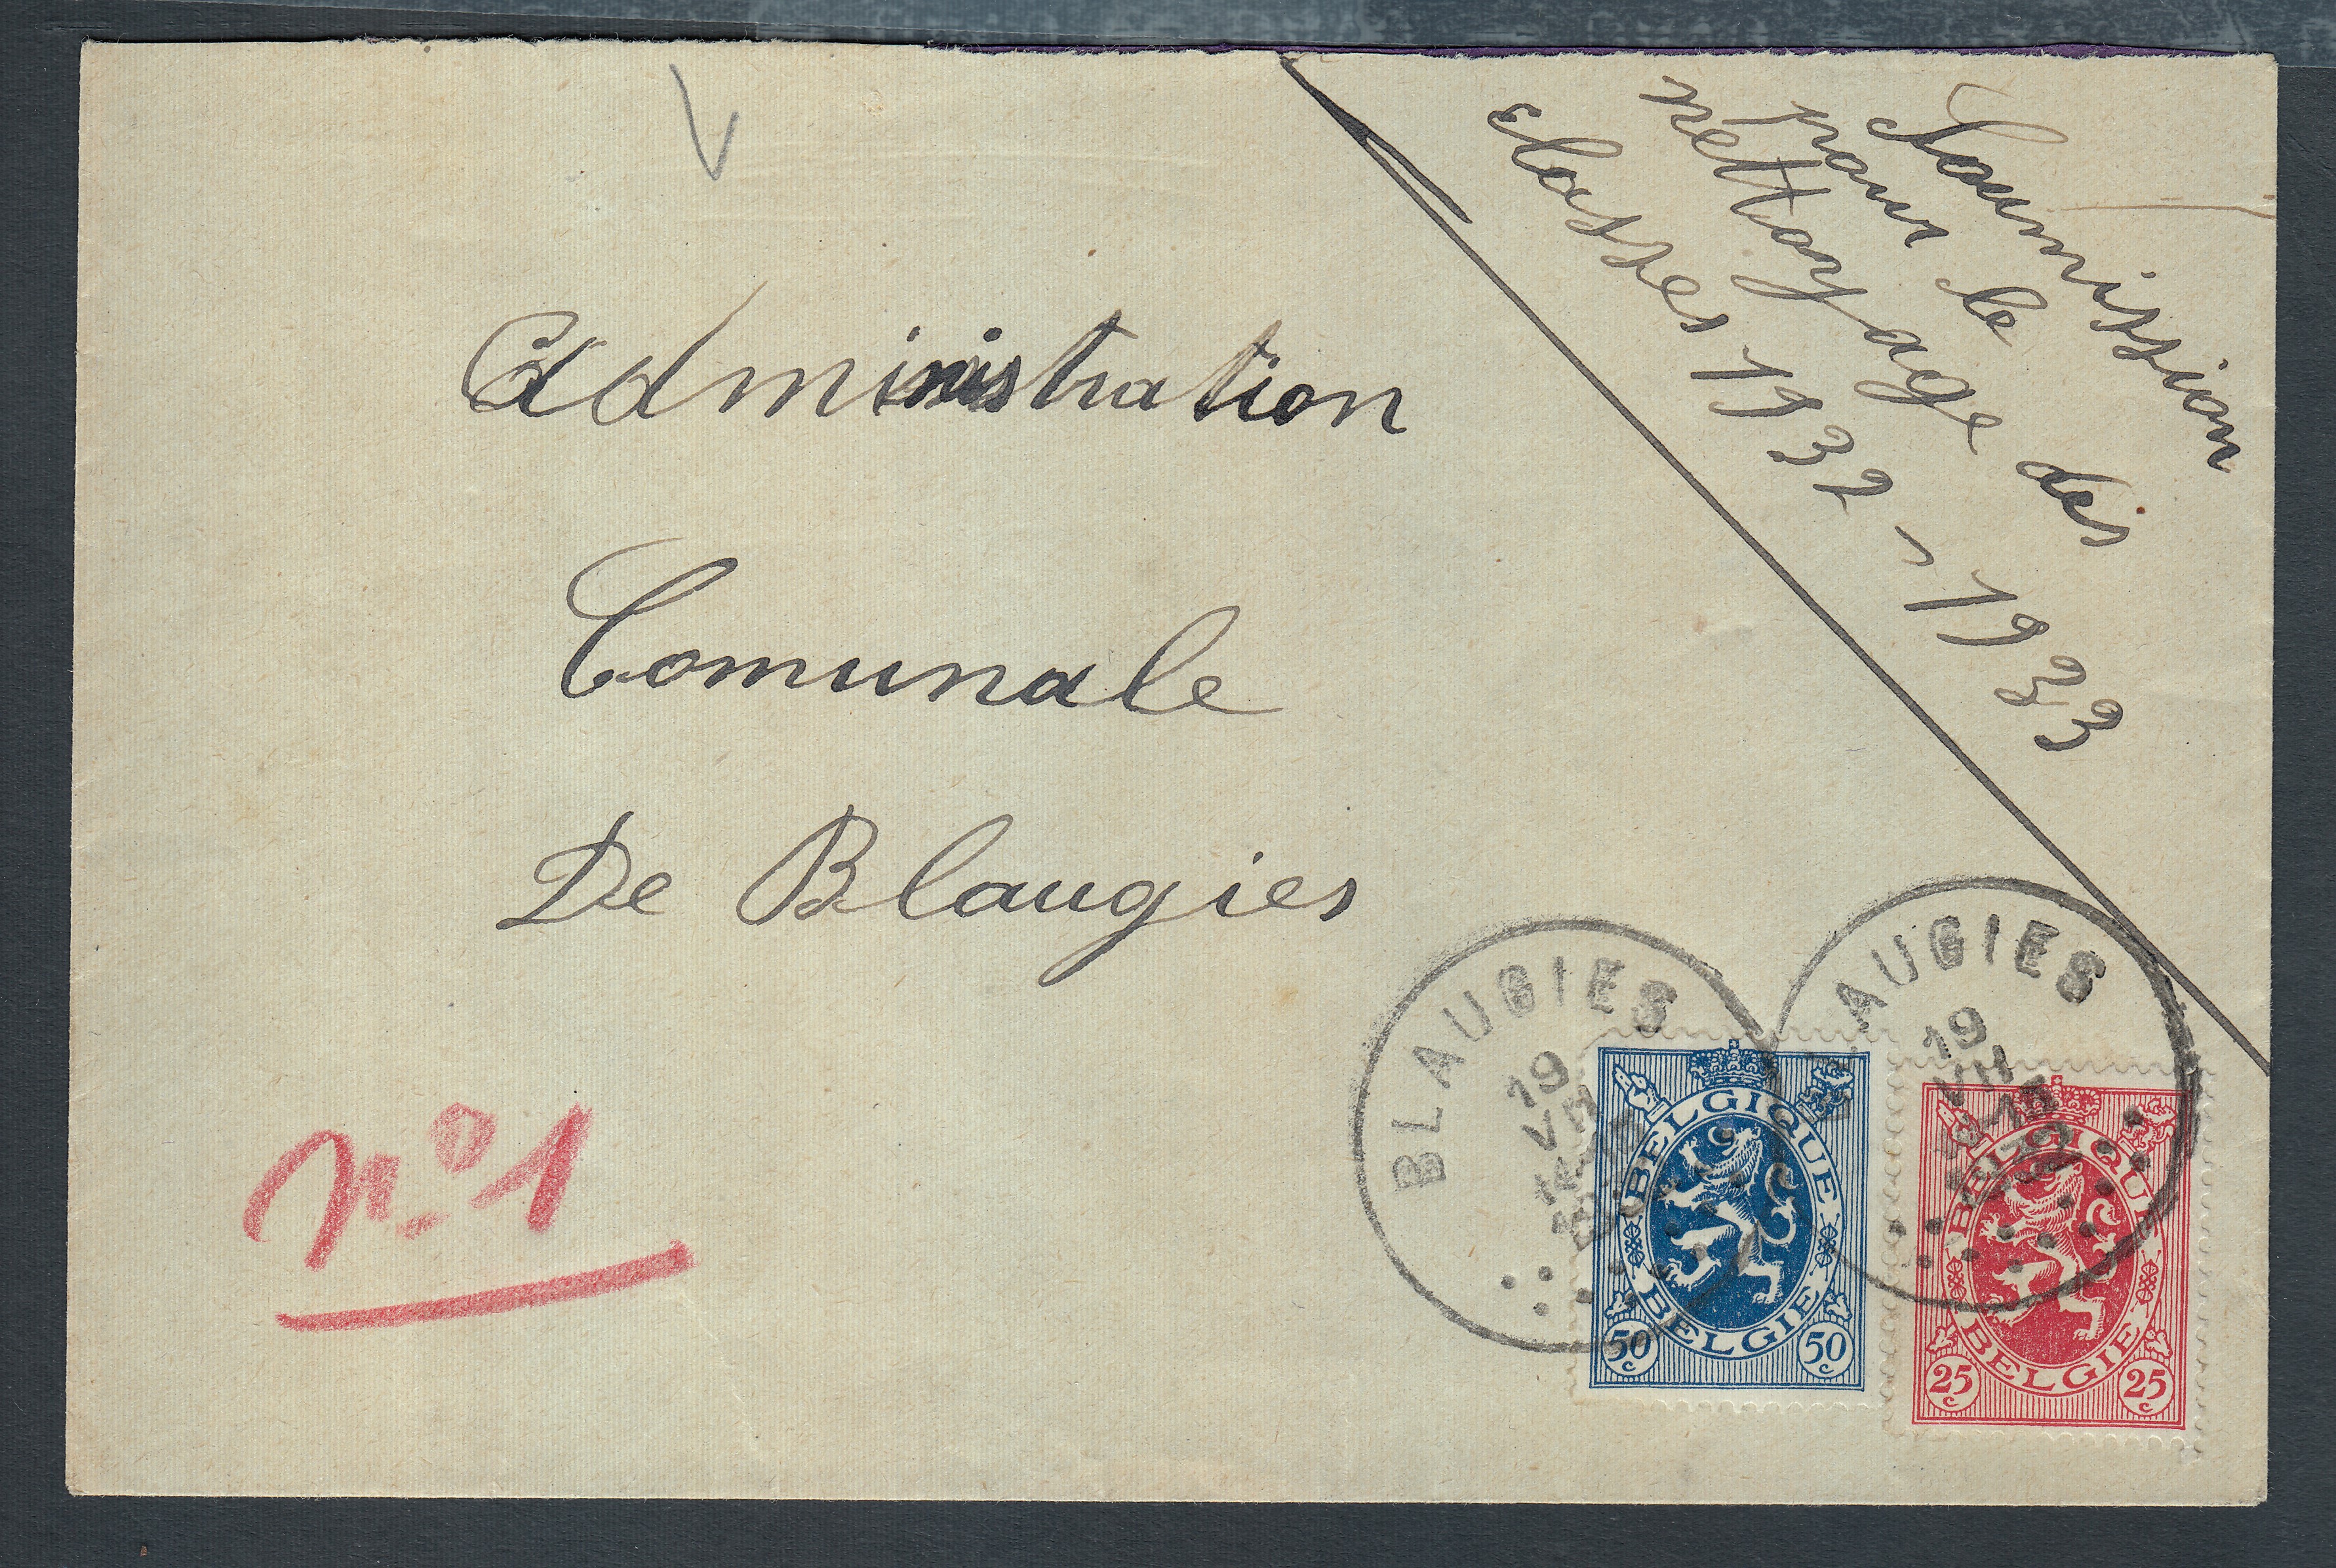 Soumission
pour le
nettoyage des
classes 1932 - 1933
Administration
Comunale
De Blaugies
N° 1
BLAUGIES
19
VII
BELGIQUE
BELGIE
50 c 50 c
AUGIES
19
VII
BELGIQUE
BELGIE
25 c 25 c